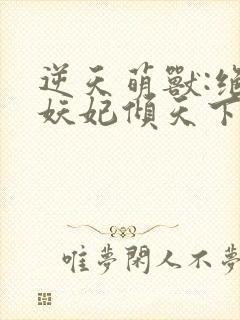 逆天萌獸:絕
妖妃傾天下
唯夢閑人不夢